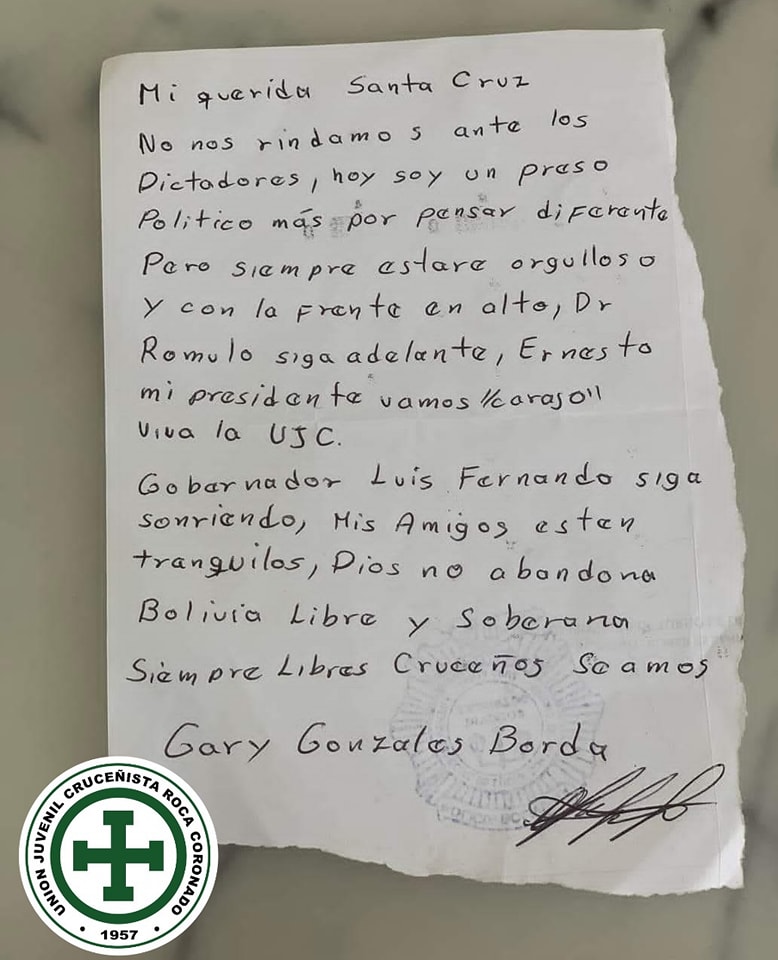 Mi querida Santa Cruz
No nos rindamos ante los
Dictadores, hoy soy un preso
Politico más por pensar diferente
Pero siempre estare orgulloso
Y con la frente en alto, Dr
Romulo siga adelante, Ernesto
mi presidente vamos "carajo"
viva la UJC.
Gobernador Luis Fernando siga
sonriendo, Mis Amigos esten
tranquilos, Dios no abandona
Bolivia Libre y Soberana
Siempre Libres Cruceños Seamos
Gary Gonzales Borda
UNION JUVENIL CRUCEÑISTA ROCA CORONADO
• 1957 •